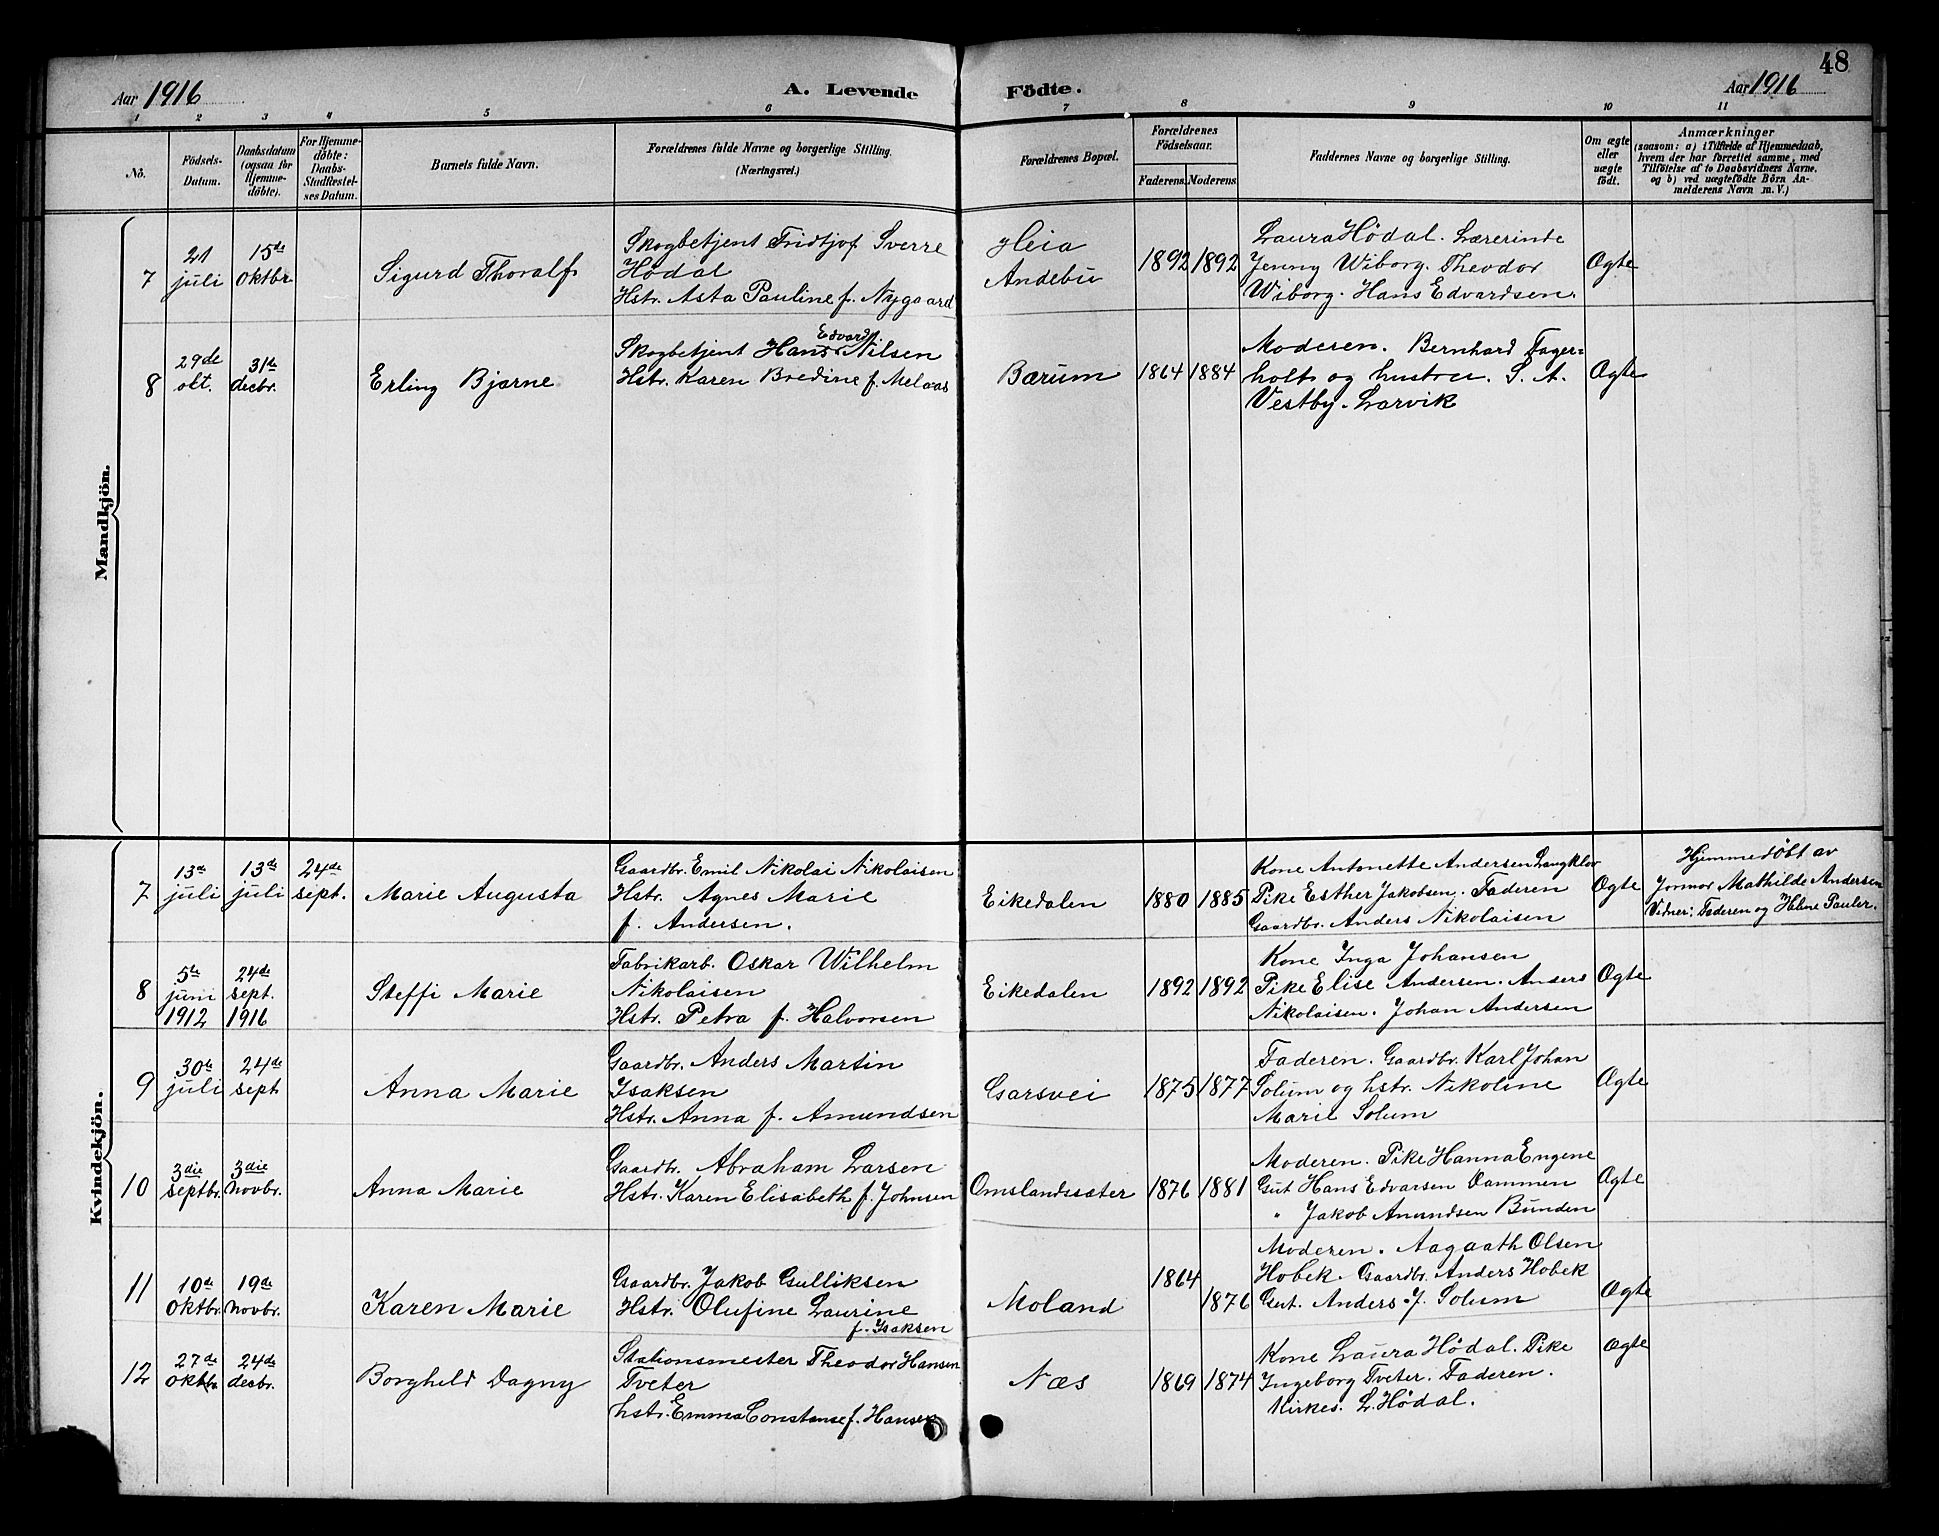 48
Aar 1916
A. Levende
Födte.
Aar 1916
1 2 3 4 5 6 7 8 9 10 11
No.
Födsels-
Datum.
Daabsdatum
(ogsaa for
Hjemme-
döbte).
For Hjemme-
döbte:
Daabs-
Stadfæstel-
ses Datum.
Barnets fulde Navn.
Forældrenes fulde Navne og borgerlige Stilling.
(Næringsvei.)
Forældrenes Bopæl.
Forældrenes
Födselsaar.
Faderens. Moderens.
Faddernes Navne og borgerlige Stilling.
Om ægte
eller
uægte
født.
Anmærkninger
(saasom: a) i Tilfælde af Hjemmedaab,
hvem der har forrettet samme, med
Tilföielse af to Daabsvidners Navne.
og b) ved uægtefödte Börn An-
melderens Navn m. V.)
Mandkjön.
7
21
juli
15de
Oktbr
Sigurd Thoralf
Skogbetjent Fridtjof Sverre
Hødal
Hstr. Asta Pauline f. Nygaard
Heia
Andebu
1892 1892
Laura Hödal. Lærerinde
Jenny Wiborg. Theodor
Wiborg. Hans Edvardsen.
Ogte
8
29de
okt.
31te
decbr.
Erling Bjarne
Edvardt
Skogbetjent Hans Nilsen
Hstr. Karen Bredine f. Melaas
Bærum
1864 1884
Moderen. Bernhard Fager=
holt og hustru. S. A.
Vestby. Larvik
Ogte
Kvindekjön.
7
13de
juli
13de
juli
24de
sept.
Marie Augusta
Gaardbr. Emil Nikolai Nikolaisen
Hstr. Agnes Marie
f. Andersen.
Eikedalen
1880 1885
Kone Antonette Andersen Langklov
Pike Esther Jakobsen. Faderen
Gaardbr. Anders Nikolaisen
Ogte
Hjemmedöbt av
Jormor Mathilde Andersen
Vidner: Faderen og Helne Pauler.
8
5te
juni
1912
24de
sept.
1916
Steffi Marie
Fabrikarb. Oskar Wilhelm
Nikolaisen
Hstr. Petra f. Halvorsen
Eikedalen
1892 1892
Kone Inga Johansen
Pike Elise Andersen. Anders
Nikolaisen. Johan Andersen
Ogte
9
30te
juli
24de
sept
Anna Marie
Gaardbr. Anders Martin
Isaksen
Hstr. Anna f. Amundsen
Garsvei
1875 1877
Faderen. Gaardbr. Karl Johan
Solum og hstr. Nikoline
Marie Solum
Ogte
10
3die
septbr.
3die
Novbr.
Anna Marie
Gaardbr. Abraham Larsen
Hstr. Karen Elisabeth f. Johnsen
Omslandssæter
1876 1881
Moderen. Pike Hanna Engene
Gut Hans Edvarsen Dammen
" Jakob Amundsen Bunden
Ogte
11
10de
Oktbr.
19de
Novbr.
Karen Marie
Gaardbr. Jakob Gulliksen
Hstr. Olufine Laurine
f. Isaksen
Moland
1864
1876
Moderen. Aagaath Olsen
Hobek. Gaardbr. Anders Hobek
Gut. Anders J. Solum
Ogte
12
27de
Oktbr
24de
decbr.
Borghild Dagny
Stationsmester Theodor Hansen
Tveter
hstr. Emma Constanse f. Hansen
Næs
1869 1874
Kone Laura Hödal. Pike
Ingeborg Tveter. Faderen.
Kirkes. L. Hödal.
Ogte